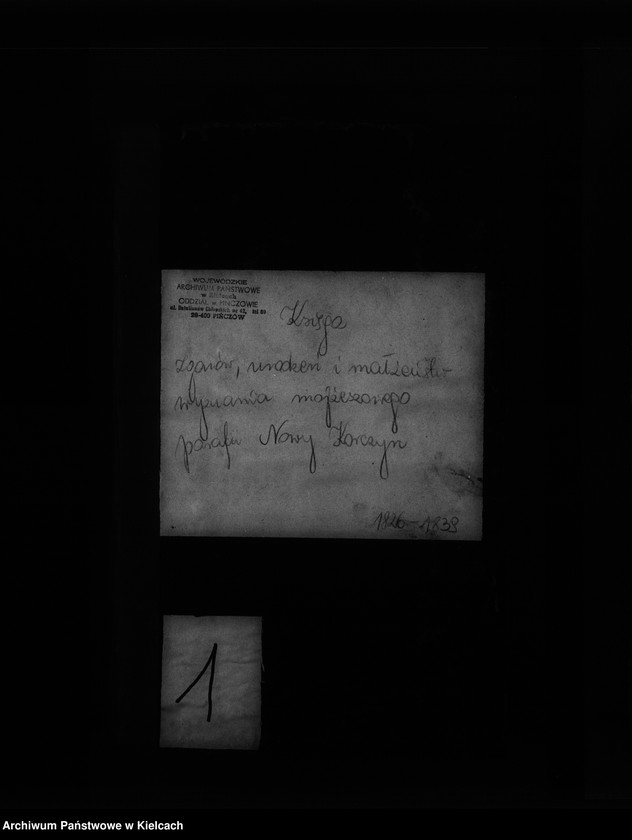 WOJEWÓDZKIE
ARCHIWUM PAŃSTWOWE
w Kielcach
ODDZIAŁ w PIŃCZOWIE
28-400 PIŃCZÓW
Księga
zgonów, urodzeń i małżeństw
wyznania mojżeszowego
parafii Nowy Korczyn
1826-1838
1
Archiwum Państwowe w Kielcach